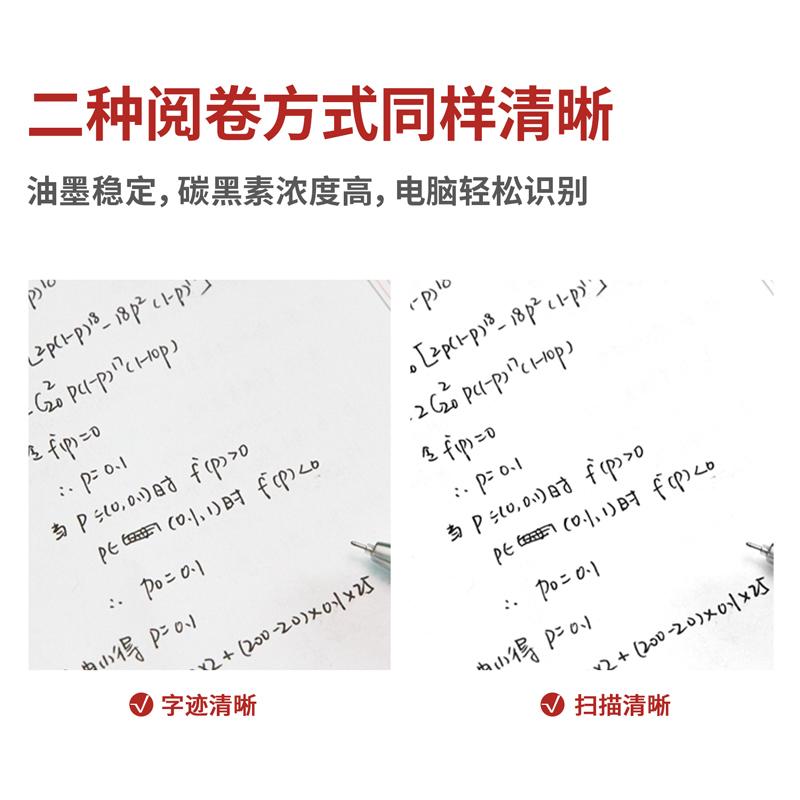 二种阅卷方式同样清晰
油墨稳定，碳黑素浓度高，电脑轻松识别
[2p(1-p)¹⁸ - 18p²(1-p)¹⁷]
C²₂₀ p(1-p)¹⁷(1-10p)
全 f'(p)=0
∴ p=0.1
当 p=(0,0.1)时 f'(p)>0
p∈ (0.1,1)时 f'(p)<0
∴ p₀=0.1
得 p=0.1
×2+(200-20)×0.1×25
-p)¹⁸
[2p(1-p)¹⁸ - 18p²(1-p)¹⁷]
.2C²₂₀ p(1-p)¹⁷(1-10p)
全 f'(p)=0
∴ p=0.1
当 p=(0,0.1)时 f'(p)>0
p∈ (0.1,1)时 f'(p)<0
∴ p₀=0.1
得 p=0.1
×2+(200-20)×0.1×25
字迹清晰
扫描清晰